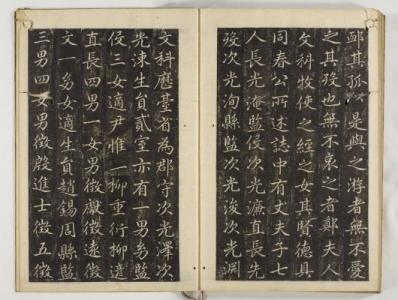 其孤是與之游者無不愛
之其歿也無不哀之者鄭夫人
文科牧使之經之女其賢德具
同春公所述誌中有丈夫子七
人長光淹監役次光濂直長先
歿次光洵縣監次光浚次光泂
文科歷臺省為郡守次光澤次
光涑生員貳室亦有一男男監
役三女適尹惟一柳重衍柳
直長四男一女男徵獻徵遠徵
文一女適生員趙錫周縣監
三男四女男徵殷進士徵五徵